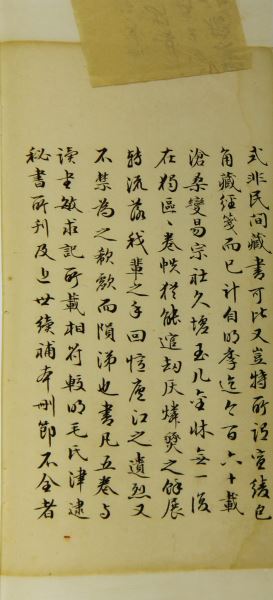 式非民間藏書可比又豈特所謂宣綾包
角藏經箋而已計自明季迄今百六十載
滄桑變易宗社久墟玉几金牀無一復
在獨區〻卷帙猶能逭劫灰燐爂之餘展
轉流落我輩之手回憶江之遺烈又
不禁為之欷歔而隕涕也書凡五卷与
讀書敏求記所載相符較明毛氏津逮
秘書所刊及世續補本刪節不全者